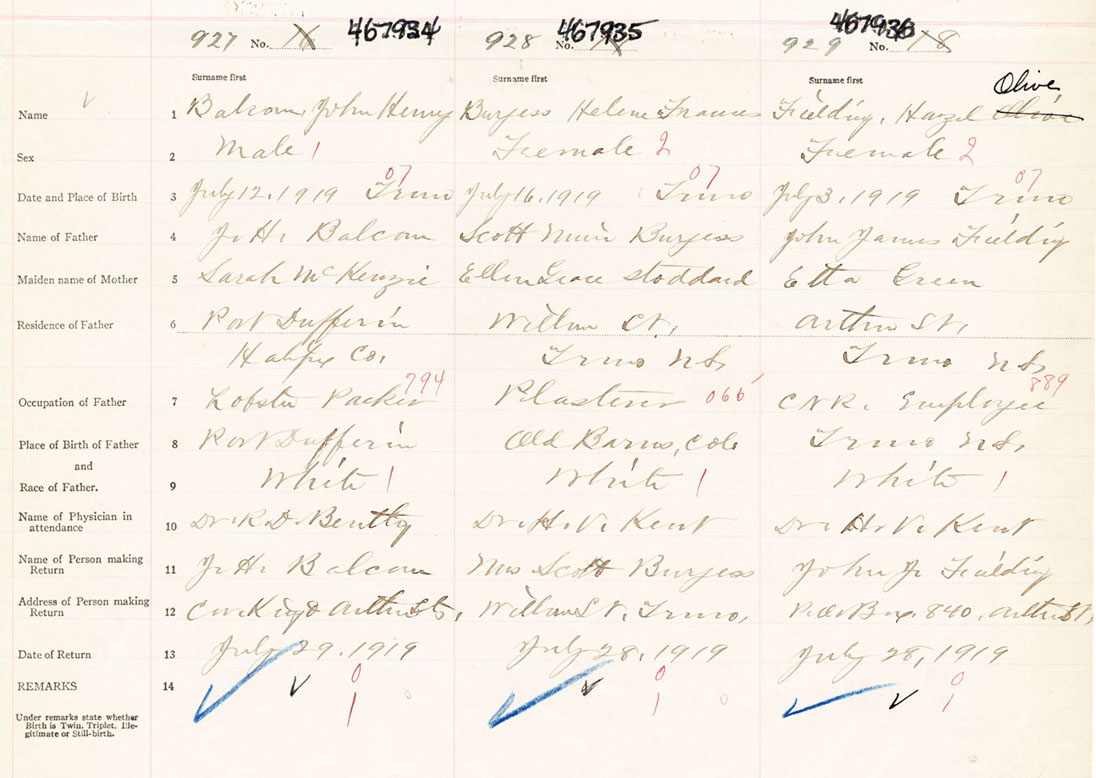 927 No. 16 467934 928 No. 467935 929 No. 18 467936
Surname first Surname first Surname first Olive
Name 1 Balcom, John Henry Burgess Helene Frances Fielding, Hazel Olive
Sex 2 Male 1 Feemale 2 Feemale 2
07 07 07
Date and Place of Birth 3 July 12, 1919 Truro July 16, 1919 Truro July 3, 1919 Truro
Name of Father 4 J. H. Balcom Scott Muir Burgess John James Fielding
Maiden name of Mother 5 Sarah McKenzie Ellen Grace Stoddard Etta Green
Residence of Father 6 Port Dufferin Willow St, Arthur St,
Halifx Co, Truro N.S, Truro N.S,
794 066 889
Occupation of Father 7 Lobster Packer Plasterer C.N.R. Employee
Place of Birth of Father 8 Port Dufferin Old Barns, Col. Truro N.S,
and
Race of Father. 9 White 1 White 1 White 1
Name of Physician in
attendance 10 Dr. R. D. Bentley Dr. H. V. Kent Dr. H. V. Kent
Name of Person making
Return 11 J. H. Balcom Mrs Scott Burgess John J. Fielding
Address of Person making
Return 12 Cor King & Arthur Sts, Willow St, Truro, P.O. Box. 840, Arthur St,
Date of Return 13 July 29, 1919 July 28, 1919 July 28, 1919
REMARKS 14 0 0 0
1 1 1
Under remarks state whether
Birth is Twin, Triplet, Ille-
gitimate or Still-birth.